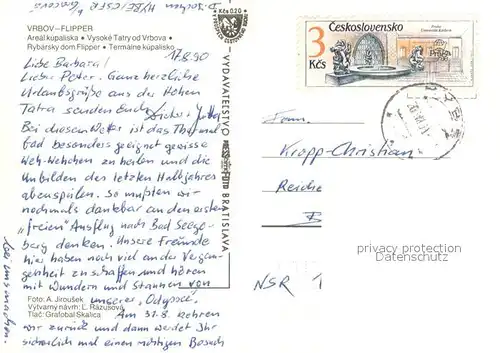 VRBOV–FLIPPER
Areál kúpaliska • Vysoké Tatry od Vrbova •
Rybársky dom Flipper • Termálne kúpalisko
Kčs 0,20
17.8.90
Liebe Barbara!
Lieber Peter. Ganz herzliche
Urlaubsgrüße aus der Hohen
Tatra senden Euch
Bei diesem Wetter ist das Thermal
bad besonders geeignet gewisse
Weh-Wehchen zu heilen und die
Unbilden des letzten Halbjahres
abzuspülen. So mußten wir
nochmals dankbar an den ersten
„freien" Ausflug nach Bad Sege-
berg denken. Unsere Freunde
hier haben noch viel an der Vergan-
genheit zu schaffen und hören
mit Wundern und Staunen von
unserer „Odyssee".
Am 31.8. kehren
wir zurück und dann werdet Ihr
sicherlich mal einen richtigen Besuch
bei uns machen.
Foto: A. Jiroušek
Výtvarný návrh: Ľ. Rosová
Tlač: Grafobal Skalica
VYDAVATEĽSTVO
BRATISLAVA
3
Kčs
Československo
Fam.
Kropp-Christian
Reiche
D
NSR 1
privacy protection
Datenschutz